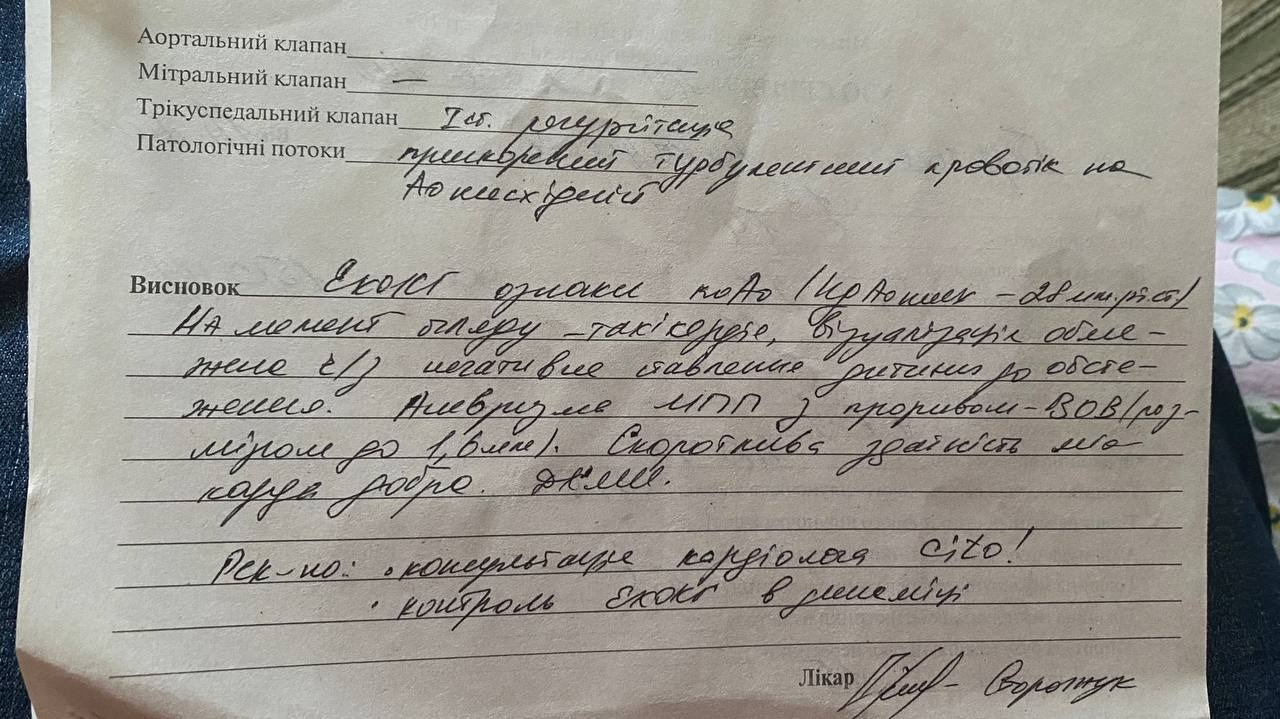 Аортальний клапан
Мітральний клапан —
Трікуспедальний клапан I ст. регургітація
Патологічні потоки прискорений турбулентний кровотік на
Ао низхідній
Висновок ЕхоКГ ознаки коАо (Гр Ао низх – 28 мм.рт.ст)
На момент огляду – тахікардія, візуалізація обме-
жена ч/з негативне ставлення дитини до обсте-
ження. Аневризма МПП з проривом – ВОВ (роз-
міром до 1,6мм). Скоротлива здатність міо-
карда добра. ДХЛШ.
Рек-но: • консультація кардіолога Cito!
• контроль ЕхоКГ в динаміці
Лікар